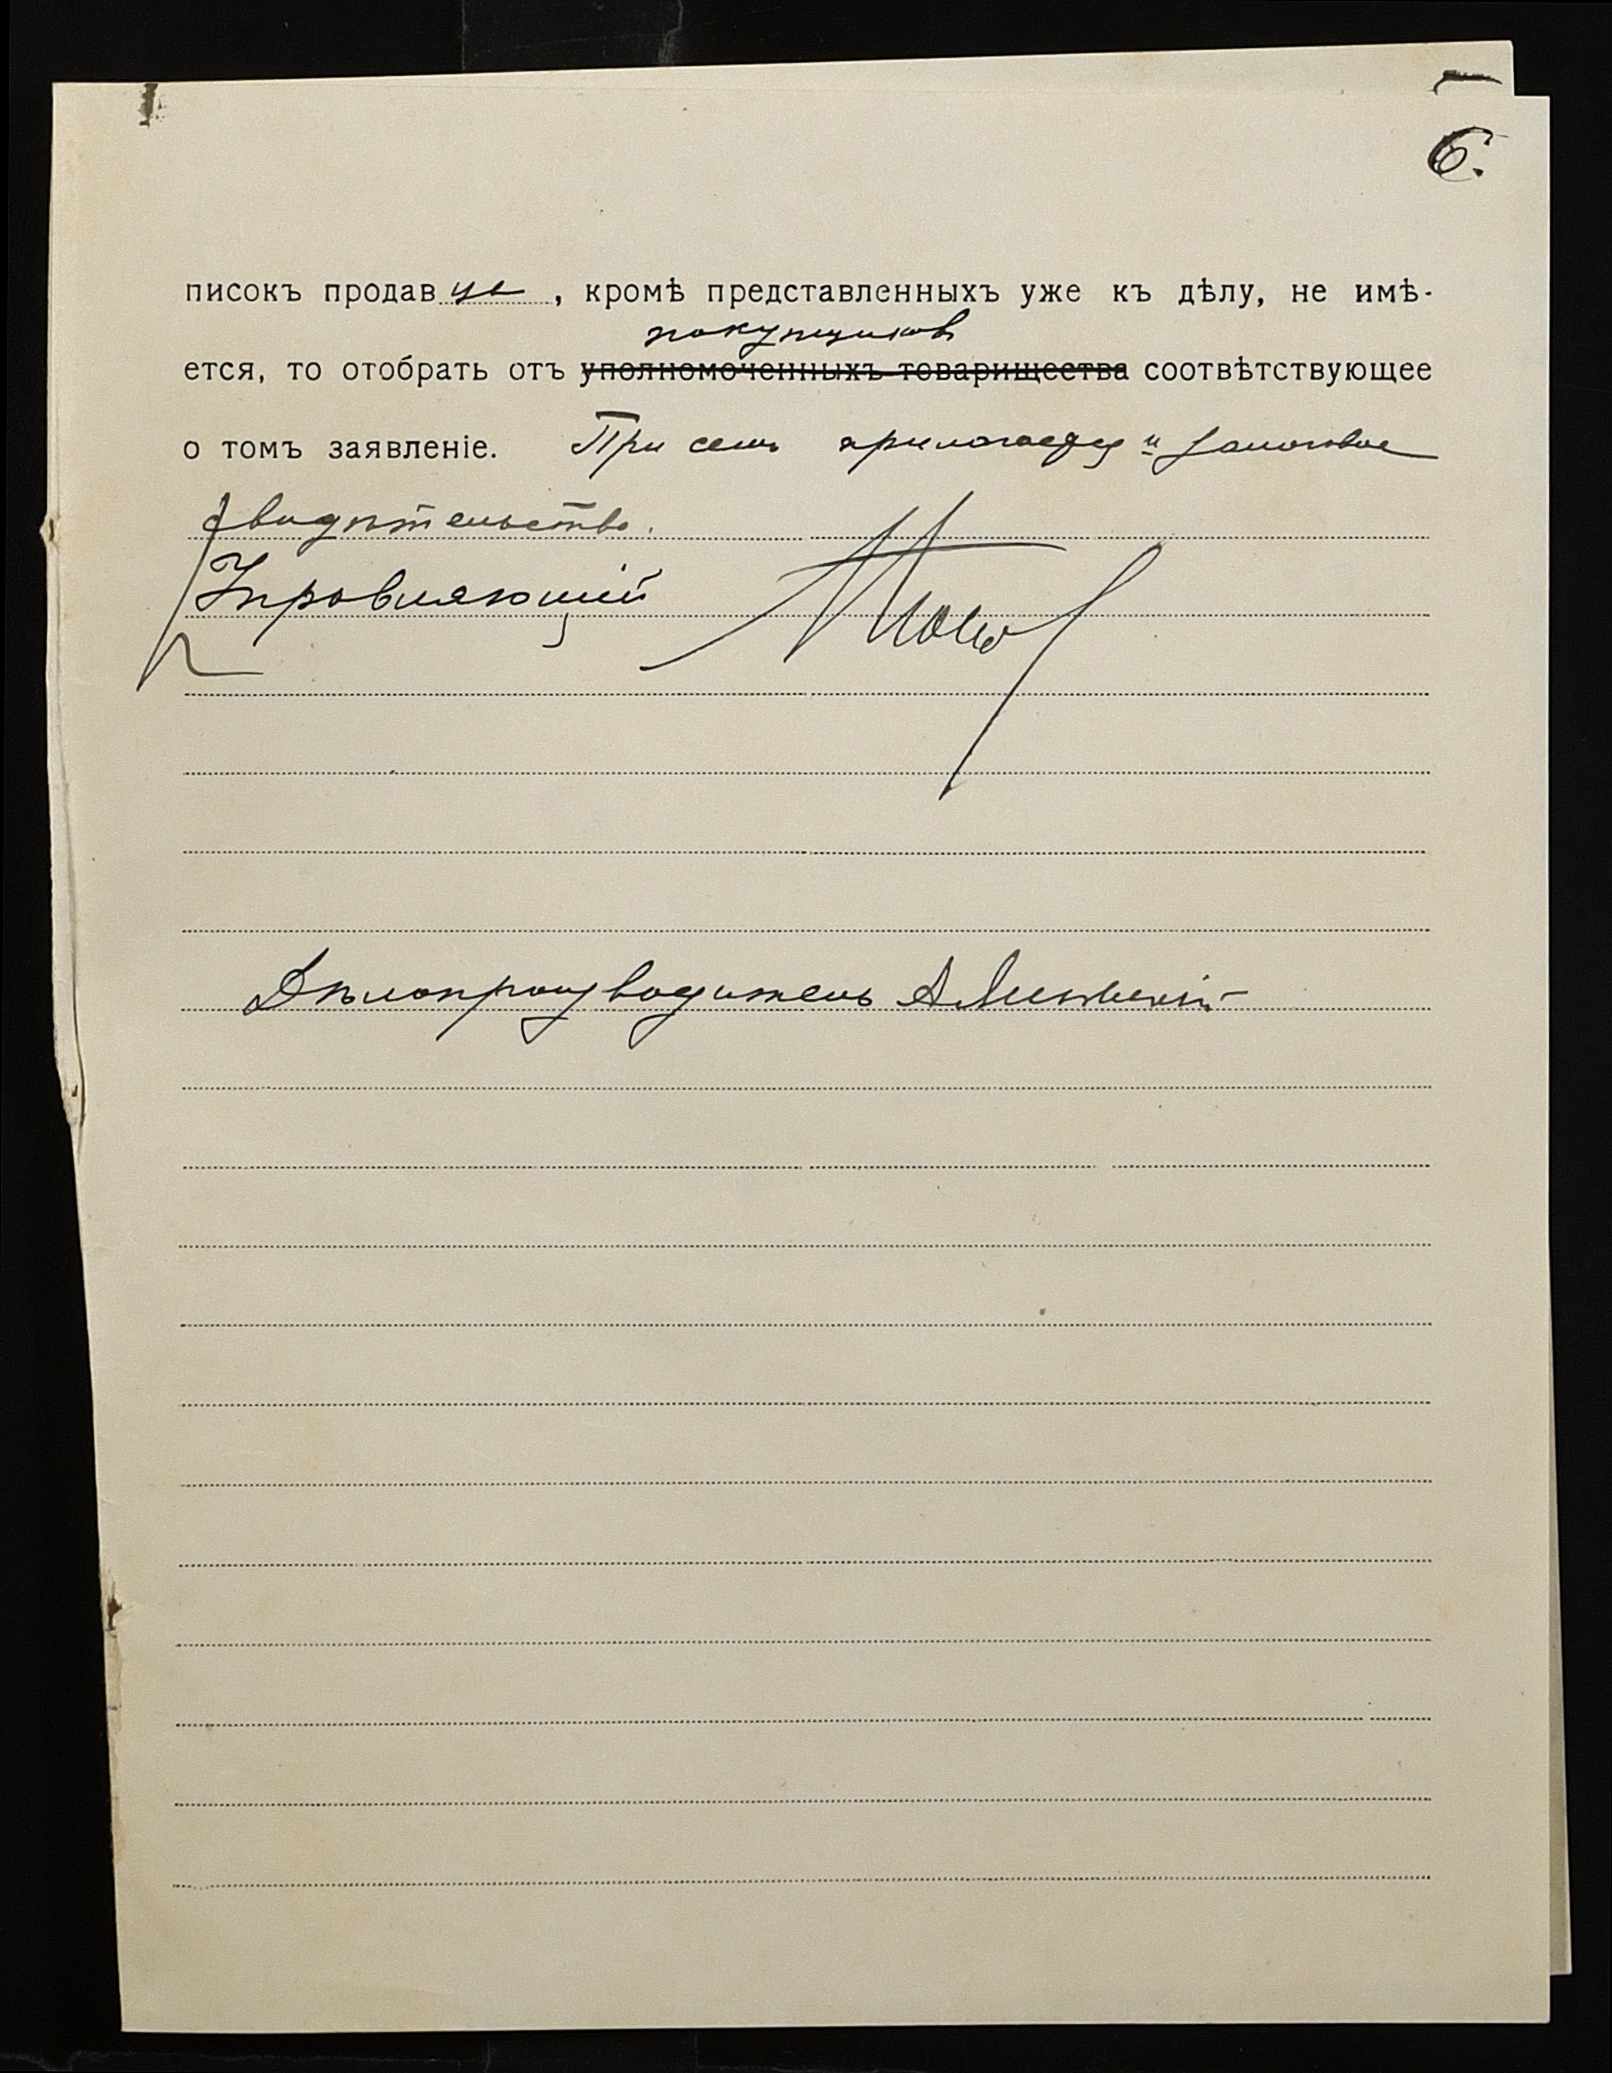 6.
писокъ продавца, кромѣ представленныхъ уже къ дѣлу, не имѣ-
покупщиковъ
ется, то отобрать отъ уполномоченныхъ товарищества соотвѣтствующее
о томъ заявленіе. При семъ прилагается и залоговое
свидѣтельство.
Управляющій Попов
Дѣлопроизводитель